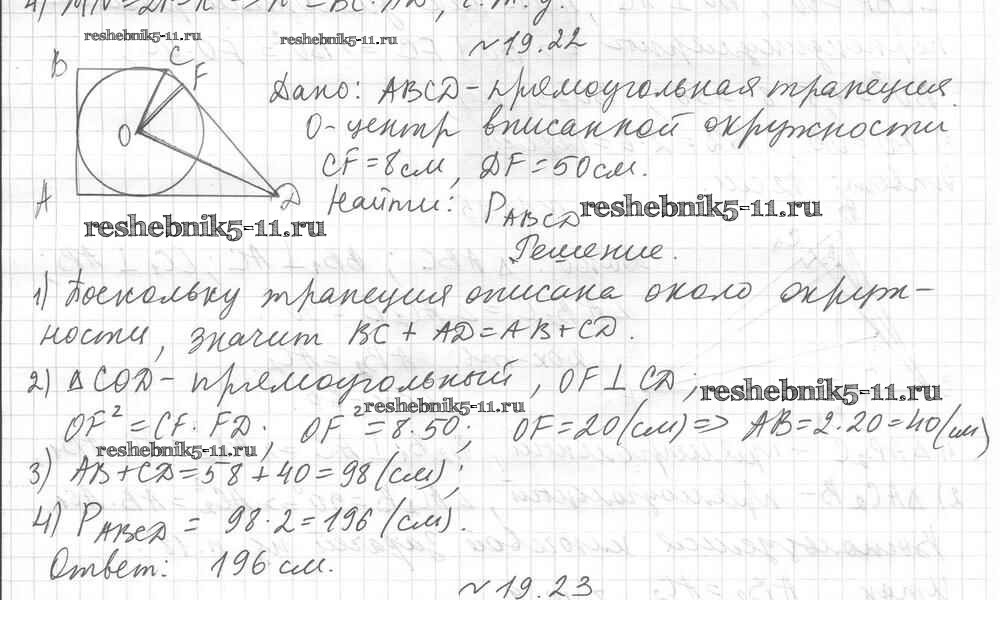 4) MN = 2r = h => h² = BC · AD, ч.т.д.
reshebnik5-11.ru
reshebnik5-11.ru
~19.22
B C F
O
A D
Дано: ABCD - прямоугольная трапеция.
O - центр вписанной окружности
CF = 8 см, DF = 50 см.
Найти: P_ABCD
reshebnik5-11.ru
reshebnik5-11.ru
Решение.
1) Поскольку трапеция описана около окруж-
ности, значит BC + AD = AB + CD.
2) △COD - прямоугольный, OF ⊥ CD;
reshebnik5-11.ru
reshebnik5-11.ru
OF² = CF · FD; OF² = 8·50; OF = 20 (см) => AB = 2·20 = 40 (см)
reshebnik5-11.ru
3) AB + CD = 58 + 40 = 98 (см);
4) P_ABCD = 98·2 = 196 (см).
Ответ: 196 см.
~19.23